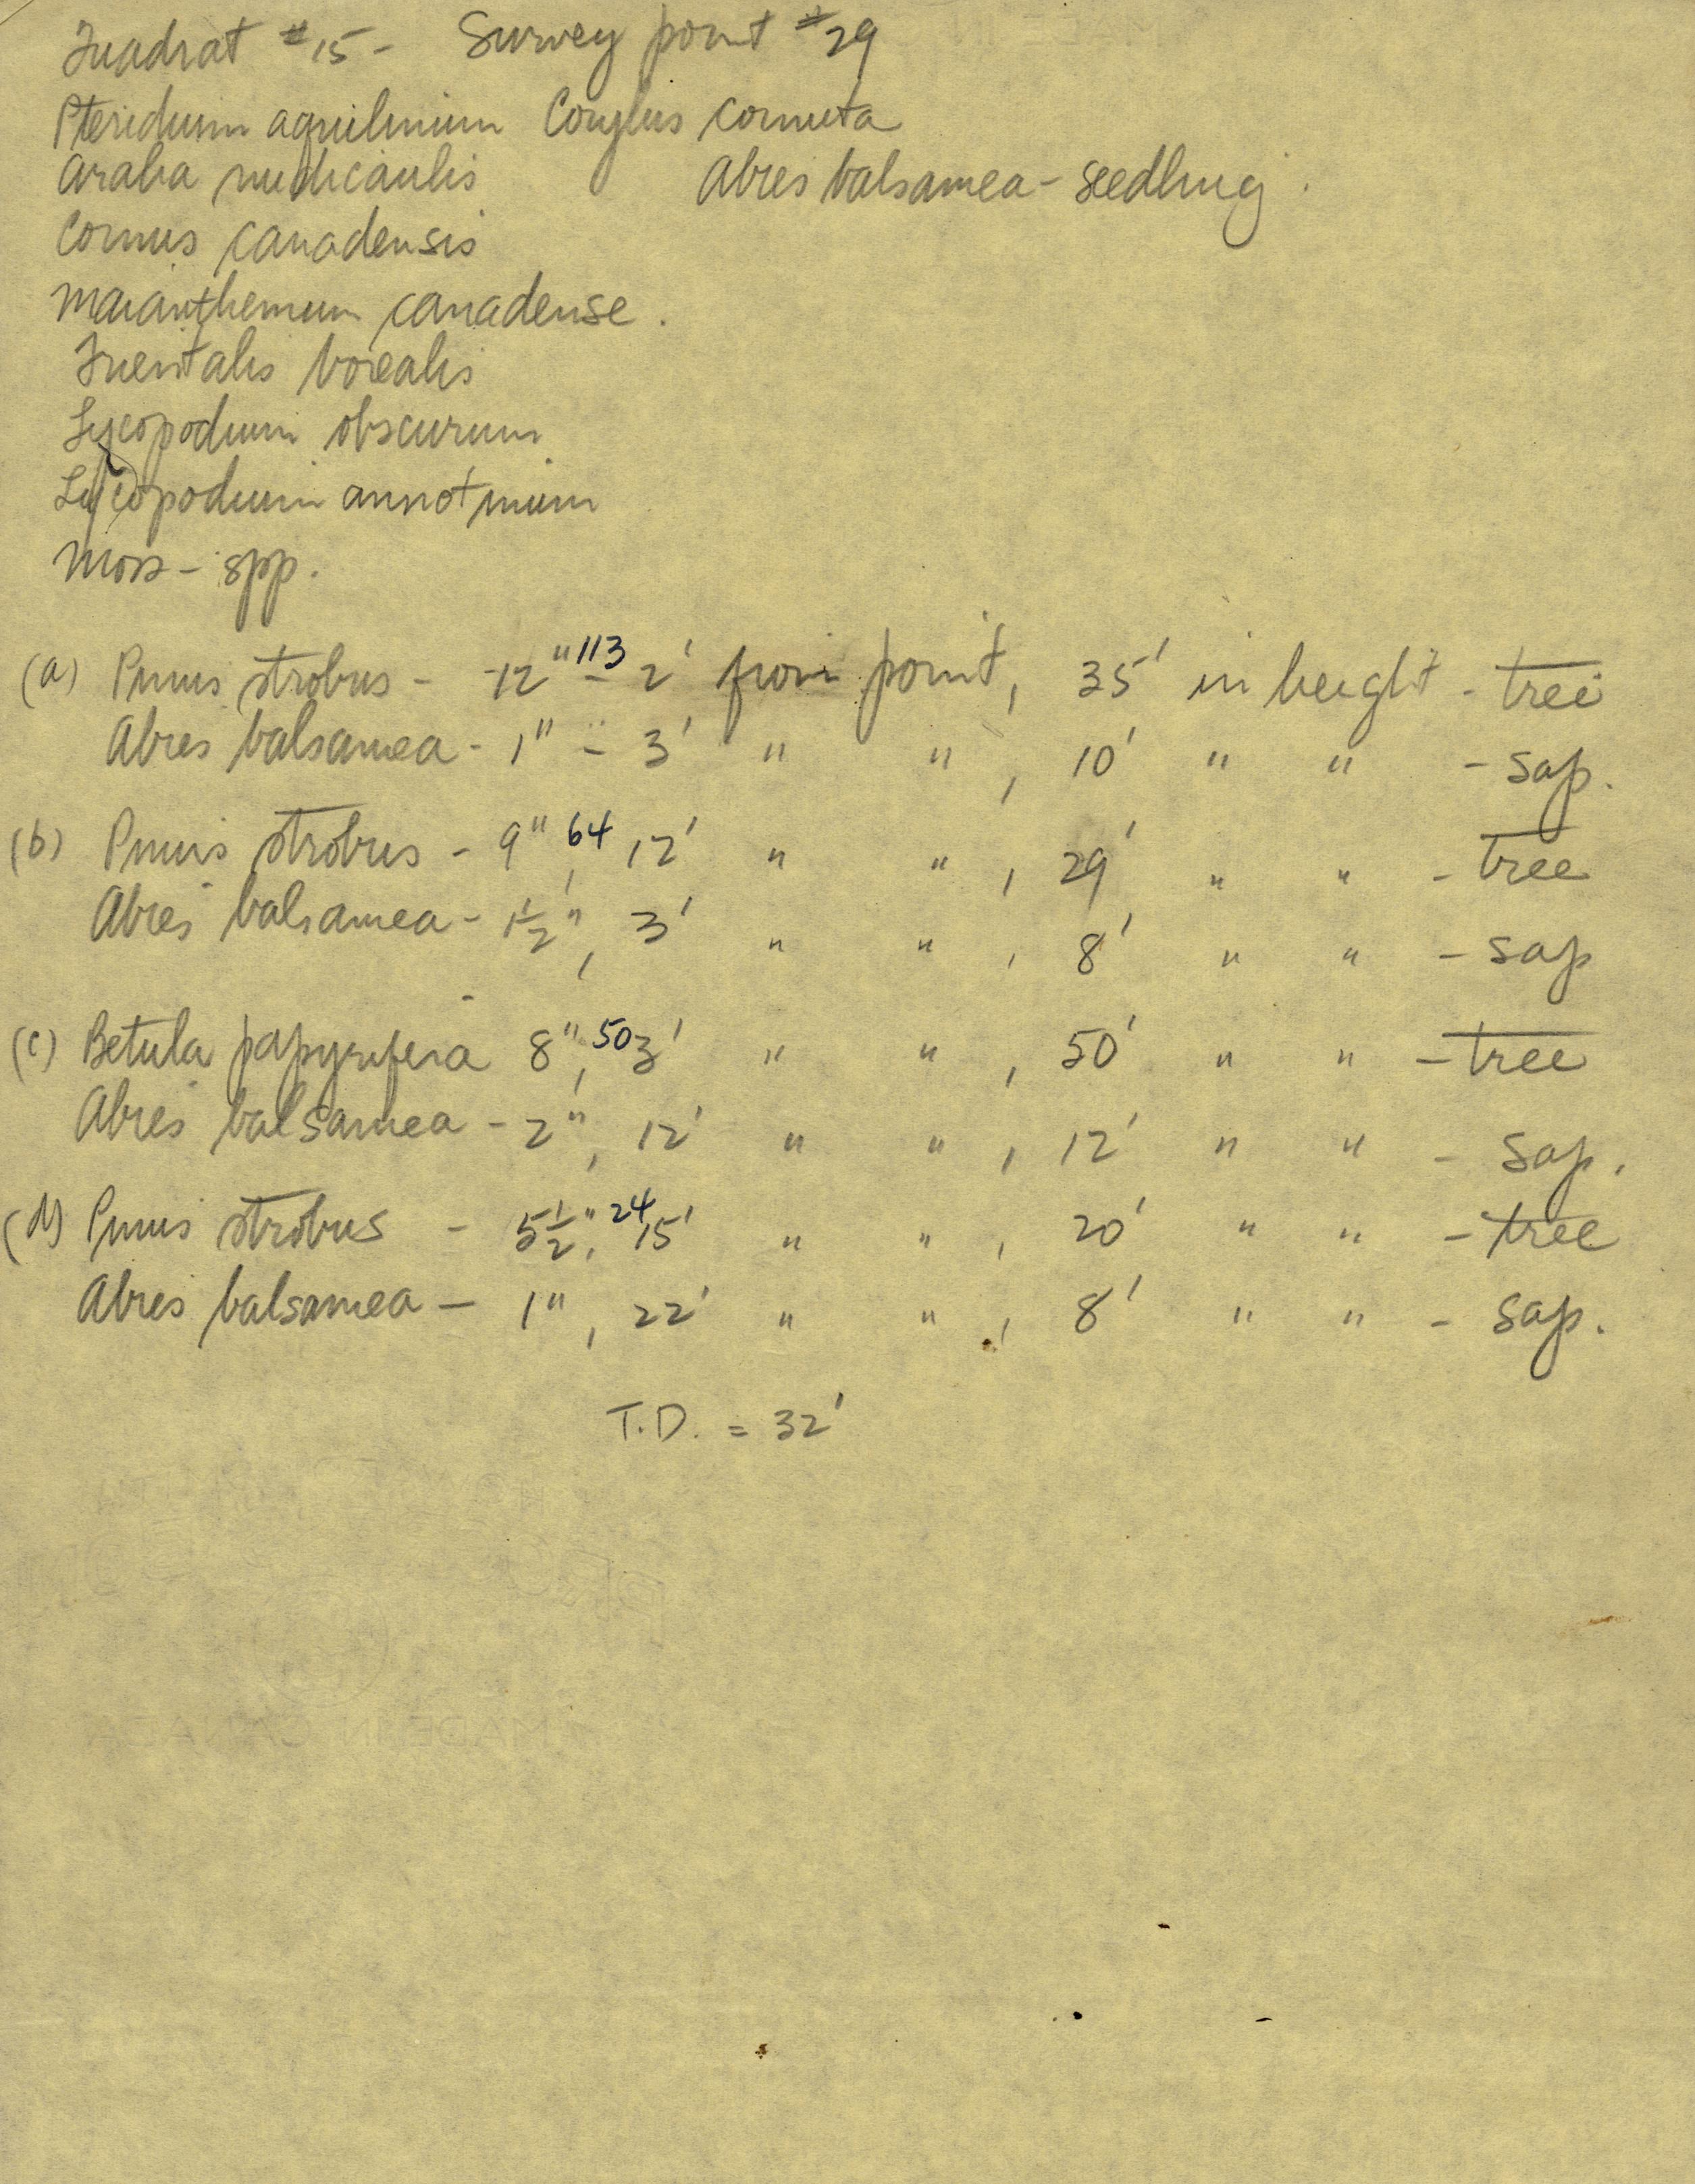 Quadrat #15 - Survey point #29
Pteridium aquilinium Corylus cornuta
Aralia nudicaulis Abies balsamea - seedling.
Cornus canadensis
Maianthemum canadense.
Trientalis borealis
Lycopodium obscurum
Lycopodium annotinum
Moss - spp.
(a) Pinus strobus - 12" 113 - 2' from point, 35' in height - tree
Abies balsamea - 1" - 3' " " , 10' " " - sap.
(b) Pinus strobus - 9" 64, 12' " " , 29' " " - tree
Abies balsamea - 1 1/2", 3' " " , 8' " " - sap
(c) Betula papyrifera 8", 50 3' " " , 50' " " - tree
Abies balsamea - 2", 12' " " , 12' " " - sap.
(d) Pinus strobus - 5 1/2", 24 15' " " , 20' " " - tree
Abies balsamea - 1", 22' " " , 8' " " - sap.
T.D. = 32'
MADE IN CANADA